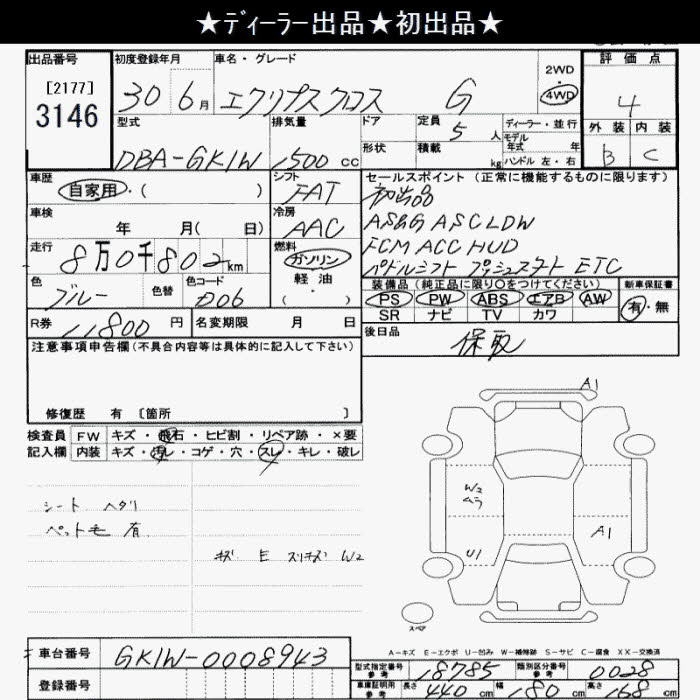 ★ディーラー出品★初出品★
出品番号 初度登録年月 車名・グレード 2WD 4WD 評価点
[2177]
3146
30 6月 エクリプスクロス G 4
型式 排気量 ドア 定員 5人 ディーラー・並行 外装 内装
モデル年式 年
DBA-GK1W 1500cc 形状 積載 kg ハンドル 左・右 B C
車歴 自家用・( ) シフト FAT セールスポイント (正常に機能するものに限ります)
初出品
車検 年 月( 日) 冷房 AAC AS&G ASC LDW
走行 8万0千802km 燃料 ガソリン FCM ACC HUD
軽油 ( ) パドルシフト プッシュスタート ETC
色 ブルー 色替 色コード D06 装備品 (純正品に限り○をつけてください) 新車保証書
PS PW ABS エアB AW 有・無
SR ナビ TV カワ
R券 11800円 名変期限 月 日 後日品 保取
注意事項申告欄(不具合内容等は具体的に記入して下さい)
修復歴 有 〔箇所 〕
検査員 FW キズ・飛石・ヒビ割・リペア跡・×要
記入欄 内装 キズ・汚レ・コゲ・穴・スレ・キレ・破レ
シート ヘタリ
ペット毛 有
キズ E スリキズ W2
A1
W2
ムラ
A1
U1
スペア
A-キズ E-エクボ U-凹み W-補修跡 S-サビ C-腐食 XX-交換済
車台番号 GK1W-0008943
型式指定番号 参考 18785 類別区分番号 参考 0028
登録番号 車庫証明用 参考 長さ 440cm 幅 180cm 高さ 168cm